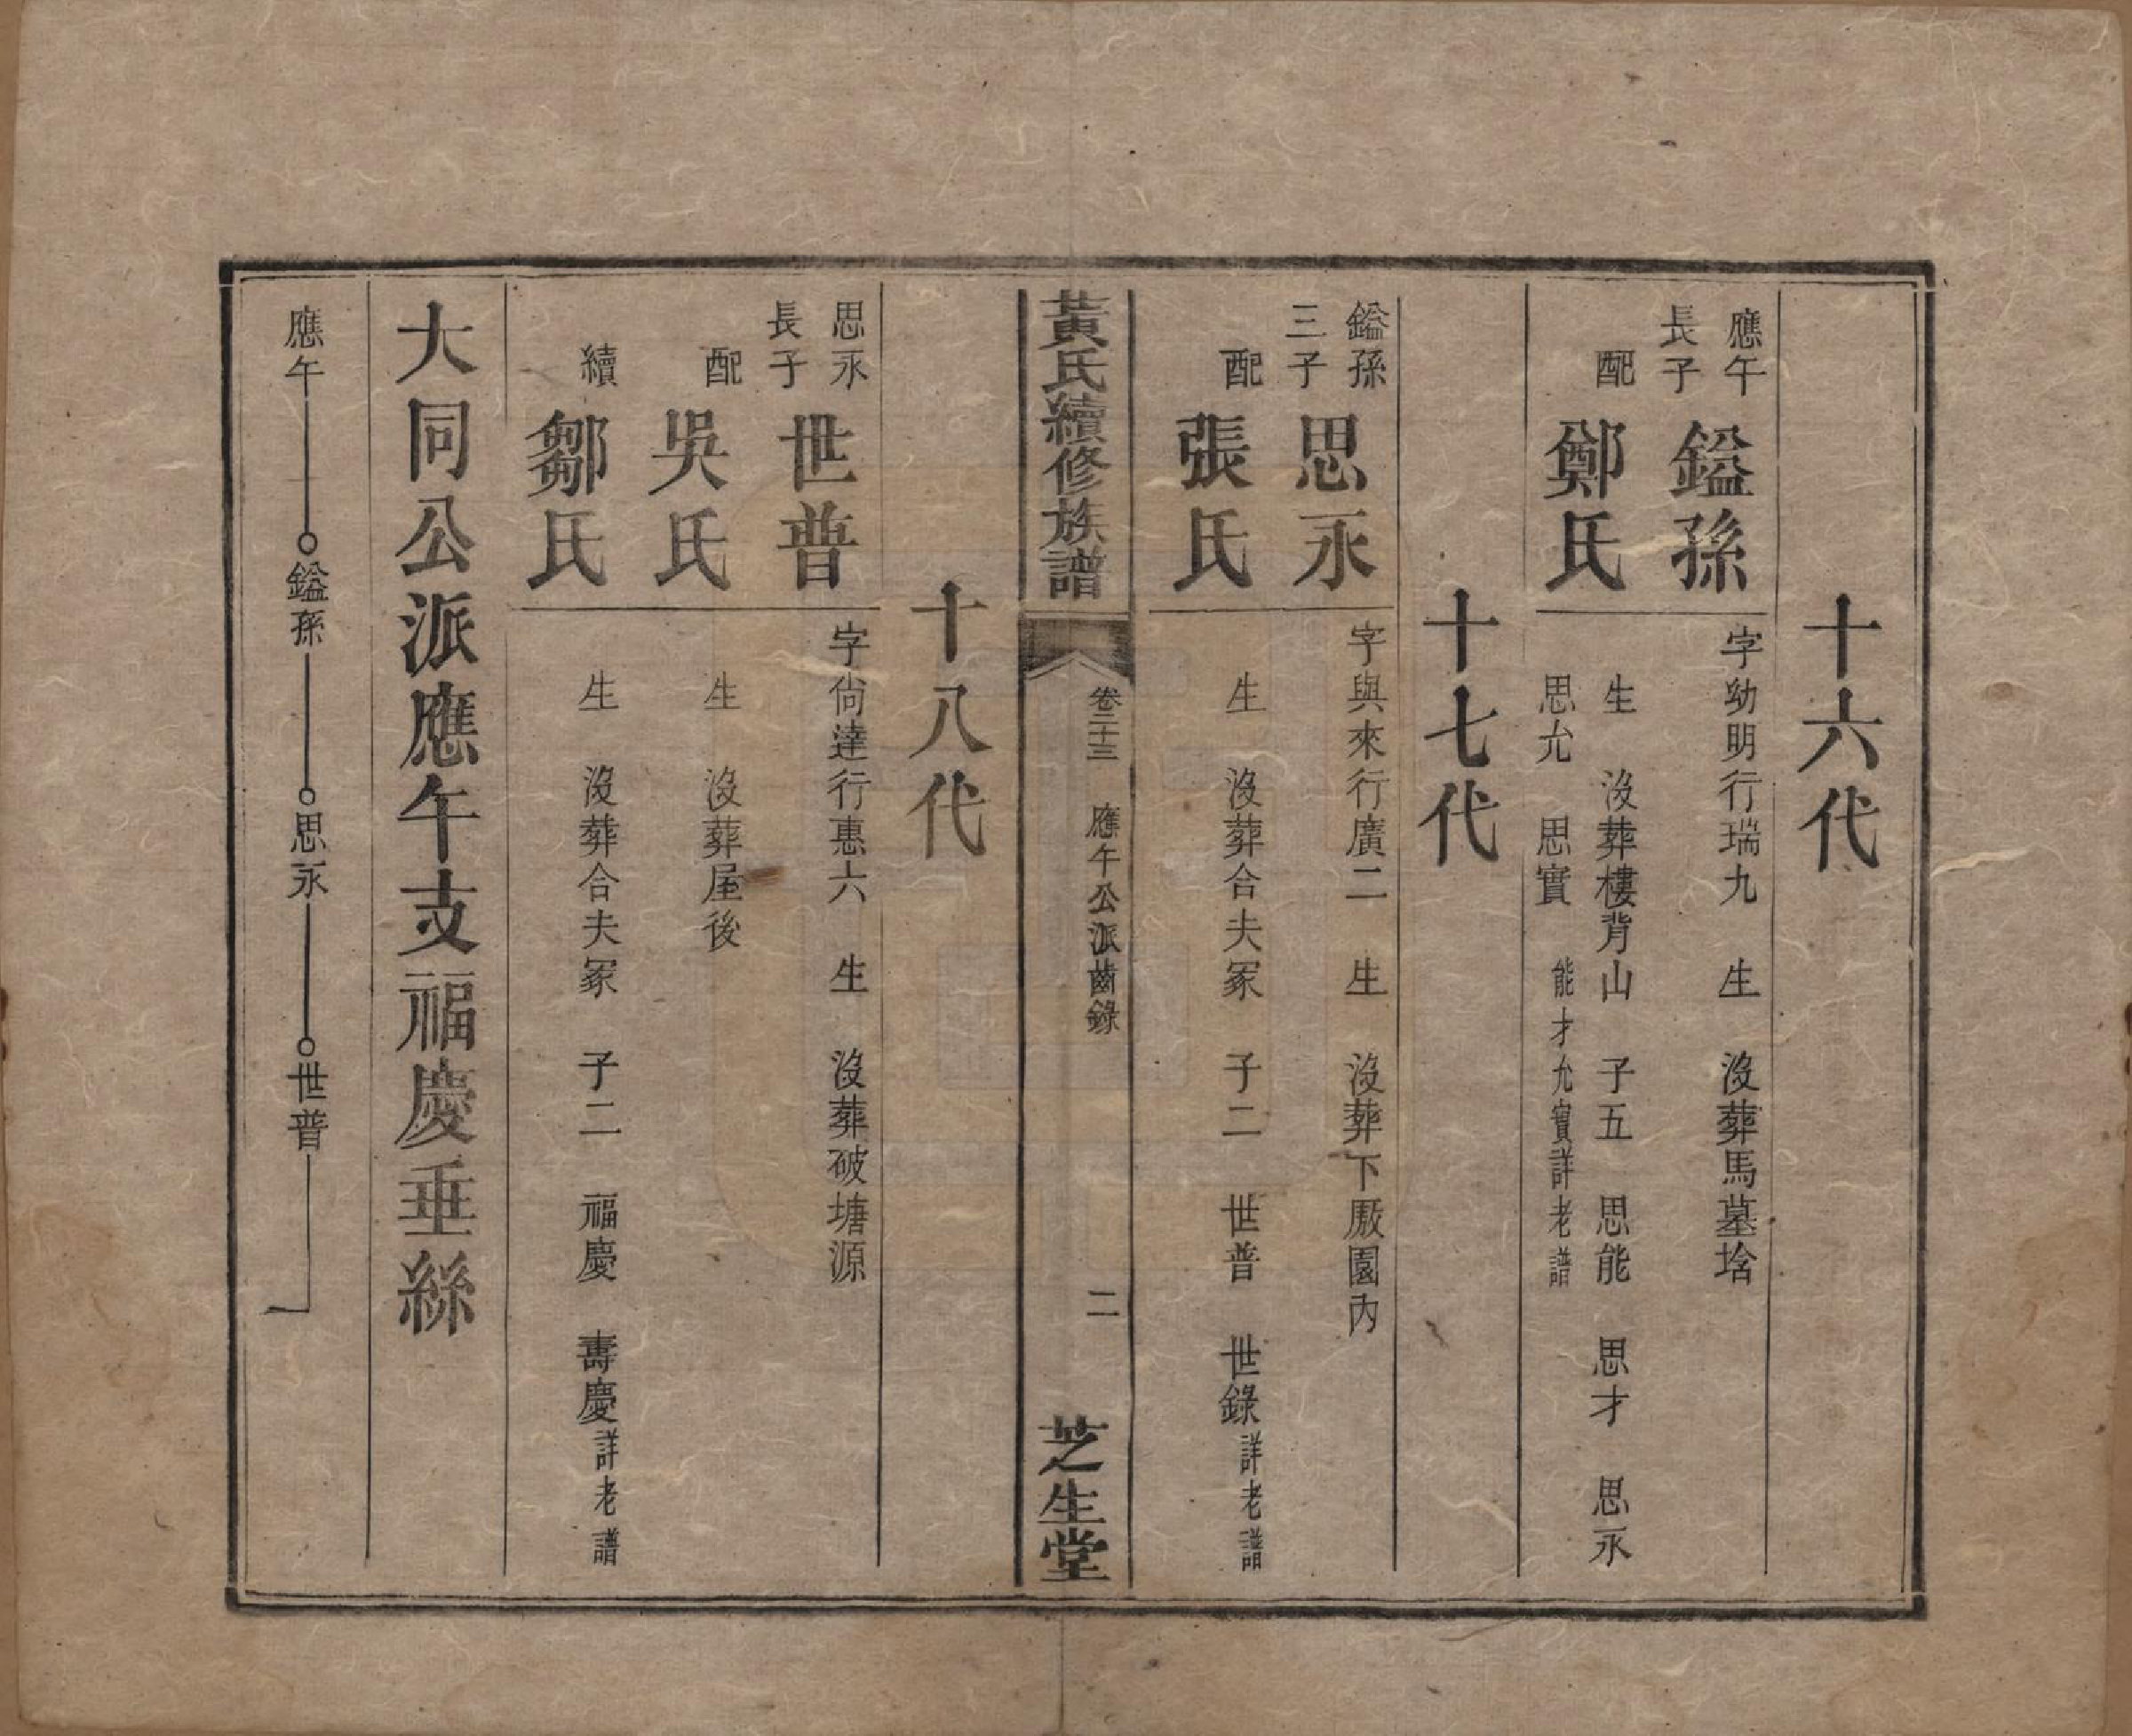 十六代
應午
長子
鎰孫
字幼明行瑞九 生 沒葬馬墓垥
配
鄭氏
生 沒葬樓背山 子五 思能 思才 思永
思允 思實 能才允實詳老譜
十七代
鎰孫
三子
思永
字與來行廣二 生 沒葬下厫園內
配
張氏
生 沒葬合夫冢 子二 世普 世錄詳老譜
黃氏續修族譜
卷二十三 應午公派齒錄 二
芝生堂
十八代
思永
長子
世普
字尙達行惠六 生 沒葬破塘源
配
吳氏
生 沒葬屋後
續
鄒氏
生 沒葬合夫冢 子二 福慶 壽慶詳老譜
大同公派應午支福慶垂絲
應午 鎰孫 思永 世普